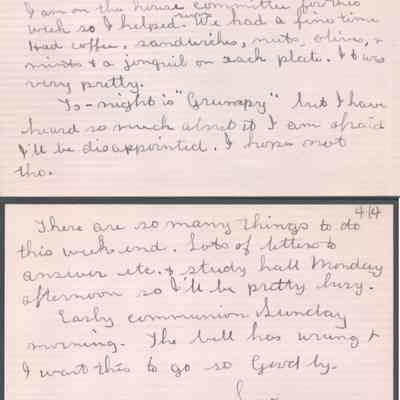 I am on the house committee for this
week so I helped. We had a fine time
Had coffee, sandwiches, nuts, olives, +
mints & a jonquil on each plate. It was
very pretty.
To-night is "Grumpy" but I have
heard so much about it I am afraid
I'll be disappointed. I hope not
tho.
4/4
There are so many things to do
this week end. Lots of letters to
answer etc. & study hall Monday
afternoon so I'll be pretty busy.
Early communion Sunday
morning. The bell has wrung +
I want this to go so Good by.